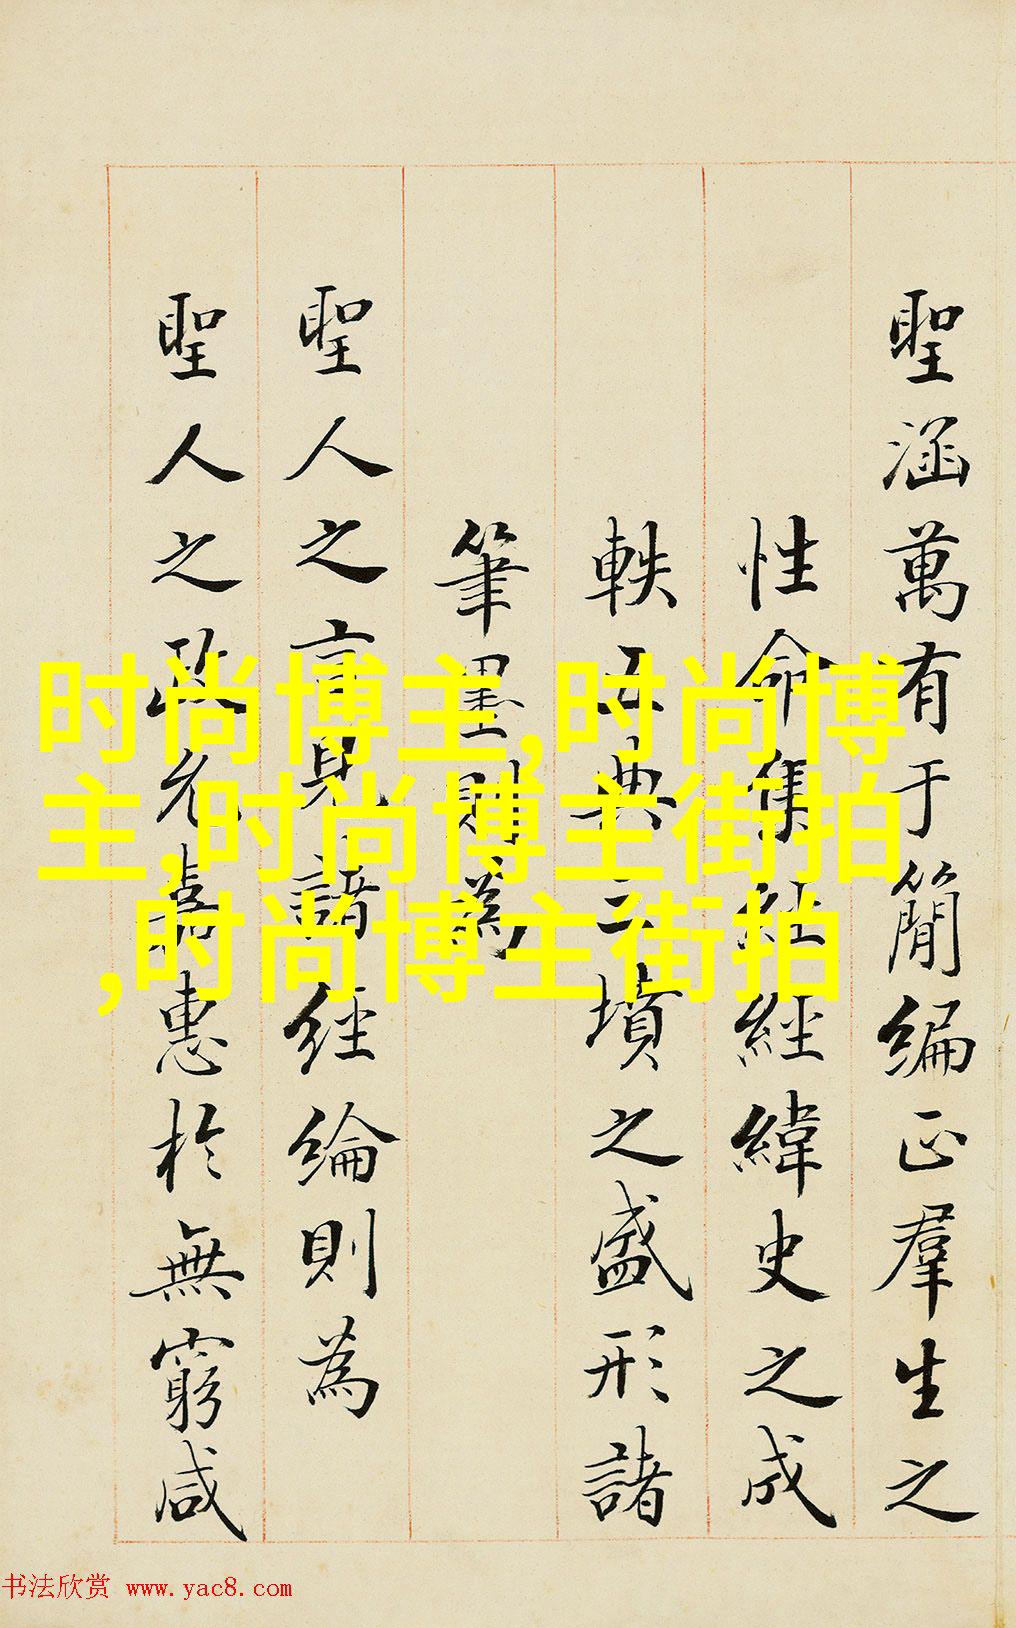 聖涵萬有于簡編正羣生之
性命集經緯史之成
軼五典三墳之盛形諸
筆墨則為
聖人之言見諸經綸則為
聖人之政允嘉惠於無窮咸
时尚博主,时尚博
主,时尚博主街拍
,时尚博主街拍
书法欣赏 www.yac8.com